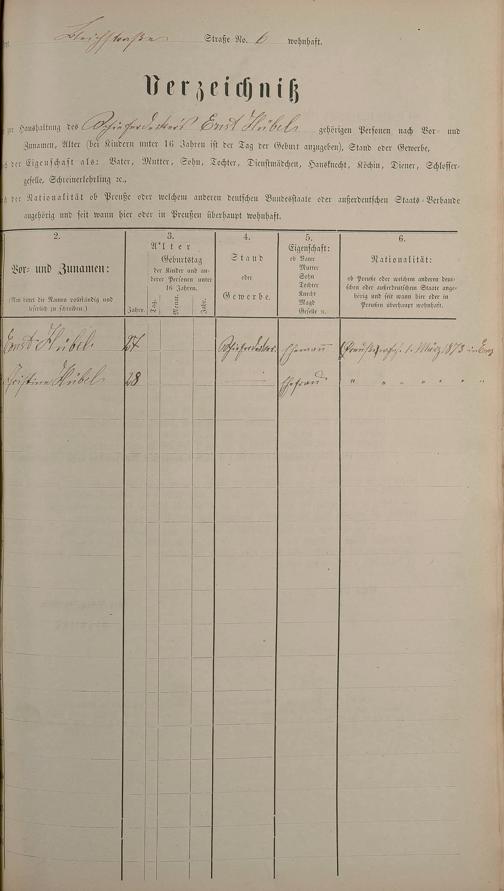 Bleichstraße Straße No. 6 wohnhaft.
Verzeichniß
zur Haushaltung des Schieferdeckers Ernst Hübel gehörigen Personen nach Vor- und
Zunamen, Alter (bei Kindern unter 16 Jahren ist der Tag der Geburt anzugeben), Stand oder Gewerbe,
der Eigenschaft als: Vater, Mutter, Sohn, Tochter, Dienstmädchen, Hausknecht, Köchin, Diener, Schlosser-
geselle, Schreinerlehrling ꝛc.,
der Nationalität ob Preuße oder welchem anderen deutschen Bundesstaate oder außerdeutschen Staats-Verbande
angehörig und seit wann hier oder in Preußen überhaupt wohnhaft.
2.
Vor- und Zunamen:
(Man bittet die Namen vollständig und
leserlich zu schreiben.)
3.
Alter
Geburtstag
der Kinder und an-
derer Personen unter
16 Jahren.
Jahre. Tag. Monat. Jahr.
4.
Stand
oder
Gewerbe.
5.
Eigenschaft:
ob Vater
Mutter
Sohn
Tochter
Knecht
Magd
Geselle ꝛc.
6.
Nationalität:
ob Preuße oder welchem anderen deut-
schen oder außerdeutschen Staate ange-
hörig und seit wann hier oder in
Preußen überhaupt wohnhaft.
Ernst Hübel 27 Schieferdecker Ehemann 1. März 1873
Christine Hübel 28 Ehefrau " " " " " "